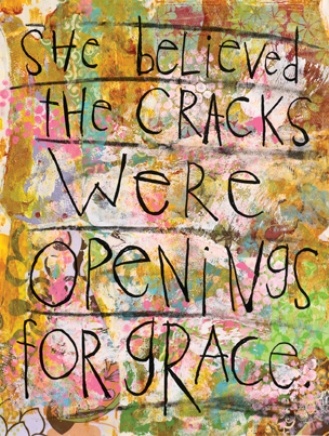 SHe believed
the CRACKS
WeRe
OPeNiNgS
foR gRAce.